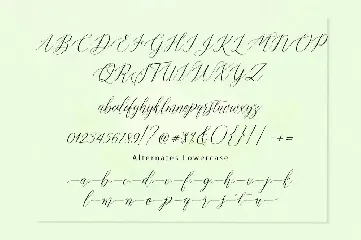 ABCDEFGHIJKLMNOP
QRSTUVWXYZ
abcdefghijklmnopqrstuvwxyz
0123456789!?@#$%&(){}/ +=
Alternates Lowercase
a b c d e f g h i j k
l m n o p q r s t u